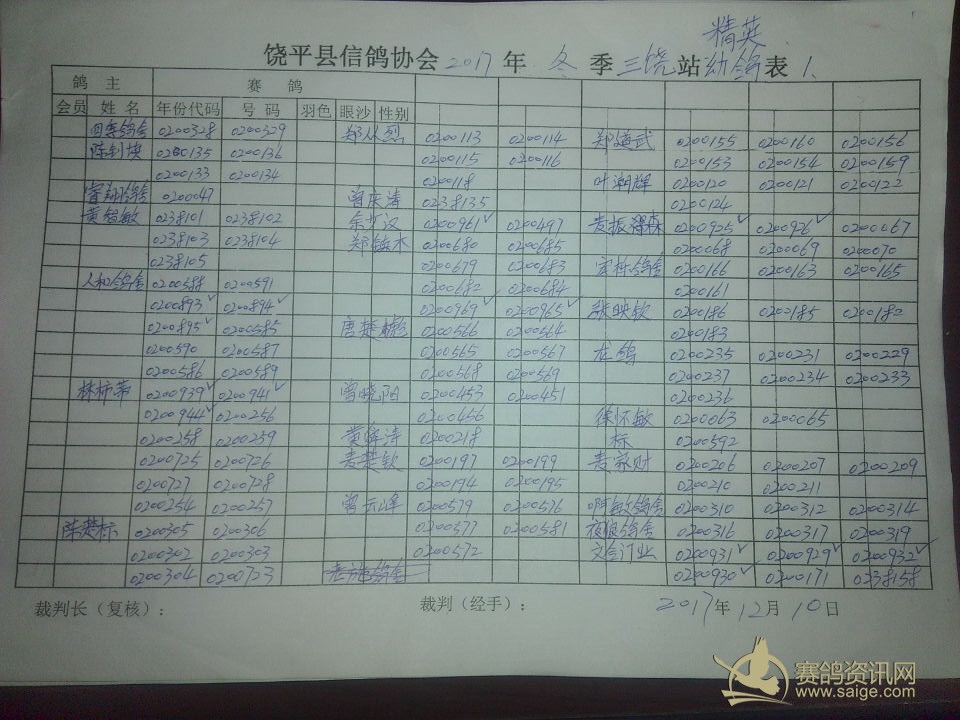 精英
饶平县信鸽协会 2017 年 冬 季 三饶 站 幼鸽 表 1.
鸽 主 赛 鸽
会员 姓 名 年份代码 号 码 羽色 眼沙 性别
四季鸽舍 0200328 0200329 郑从烈 0200113 0200114 0200155 0200160 0200156
陈钊 0200135 0200136 0200115 0200116 0200153 0200154 0200159
0200133 0200134 0200118 叶潮辉 0200120 0200121 0200122
鸽舍 0200047 曾庆涛 0238135 0200124
黄 敏 0238101 0238102 余 汉 0200961✓ 0200497 麦振 0200925✓ 0200926✓ 0200067
0238103 0238104 郑 木 0200680 0200685 0200068 0200069 0200070
0238105 0200679 0200683 鸽舍 0200166 0200163 0200165
人和鸽舍 0200588 0200591 0200682 0200684 0200161
0200893✓ 0200894✓ 0200969✓ 0200965✓ 张映钦 0200186 0200185 0200182
0200895✓ 0200585 唐楚 0200566 0200564 0200183
0200590 0200587 0200565 0200567 龙鸽 0200235 0200231 0200229
0200586 0200589 0200568 0200569 0200237 0200234 0200233
林 0200939✓ 0200941✓ 曾晓阳 0200453 0200451 0200236
0200944✓ 0200256 0200456 徐怀敏 0200063 0200065
0200258 0200259 黄 涛 0200218 标 0200592
0200725 0200726 麦楚钦 0200197 0200199 麦家财 0200206 0200207 0200209
0200727 0200728 0200194 0200195 0200210 0200211
0200254 0200257 曾云峰 0200579 0200576 啊敏鸽舍 0200310 0200312 0200314
陈楚标 0200305 0200306 0200577 0200581 夜狼鸽舍 0200316 0200317 0200319
0200302 0200303 0200572 文合门业 0200931✓ 0200929✓ 0200932✓
0200304 0200723 0200930✓ 0200171 0238158
裁判长（复核）： 裁判（经手）： 2017年 12月 10日
赛鸽资讯网
www.saige.com